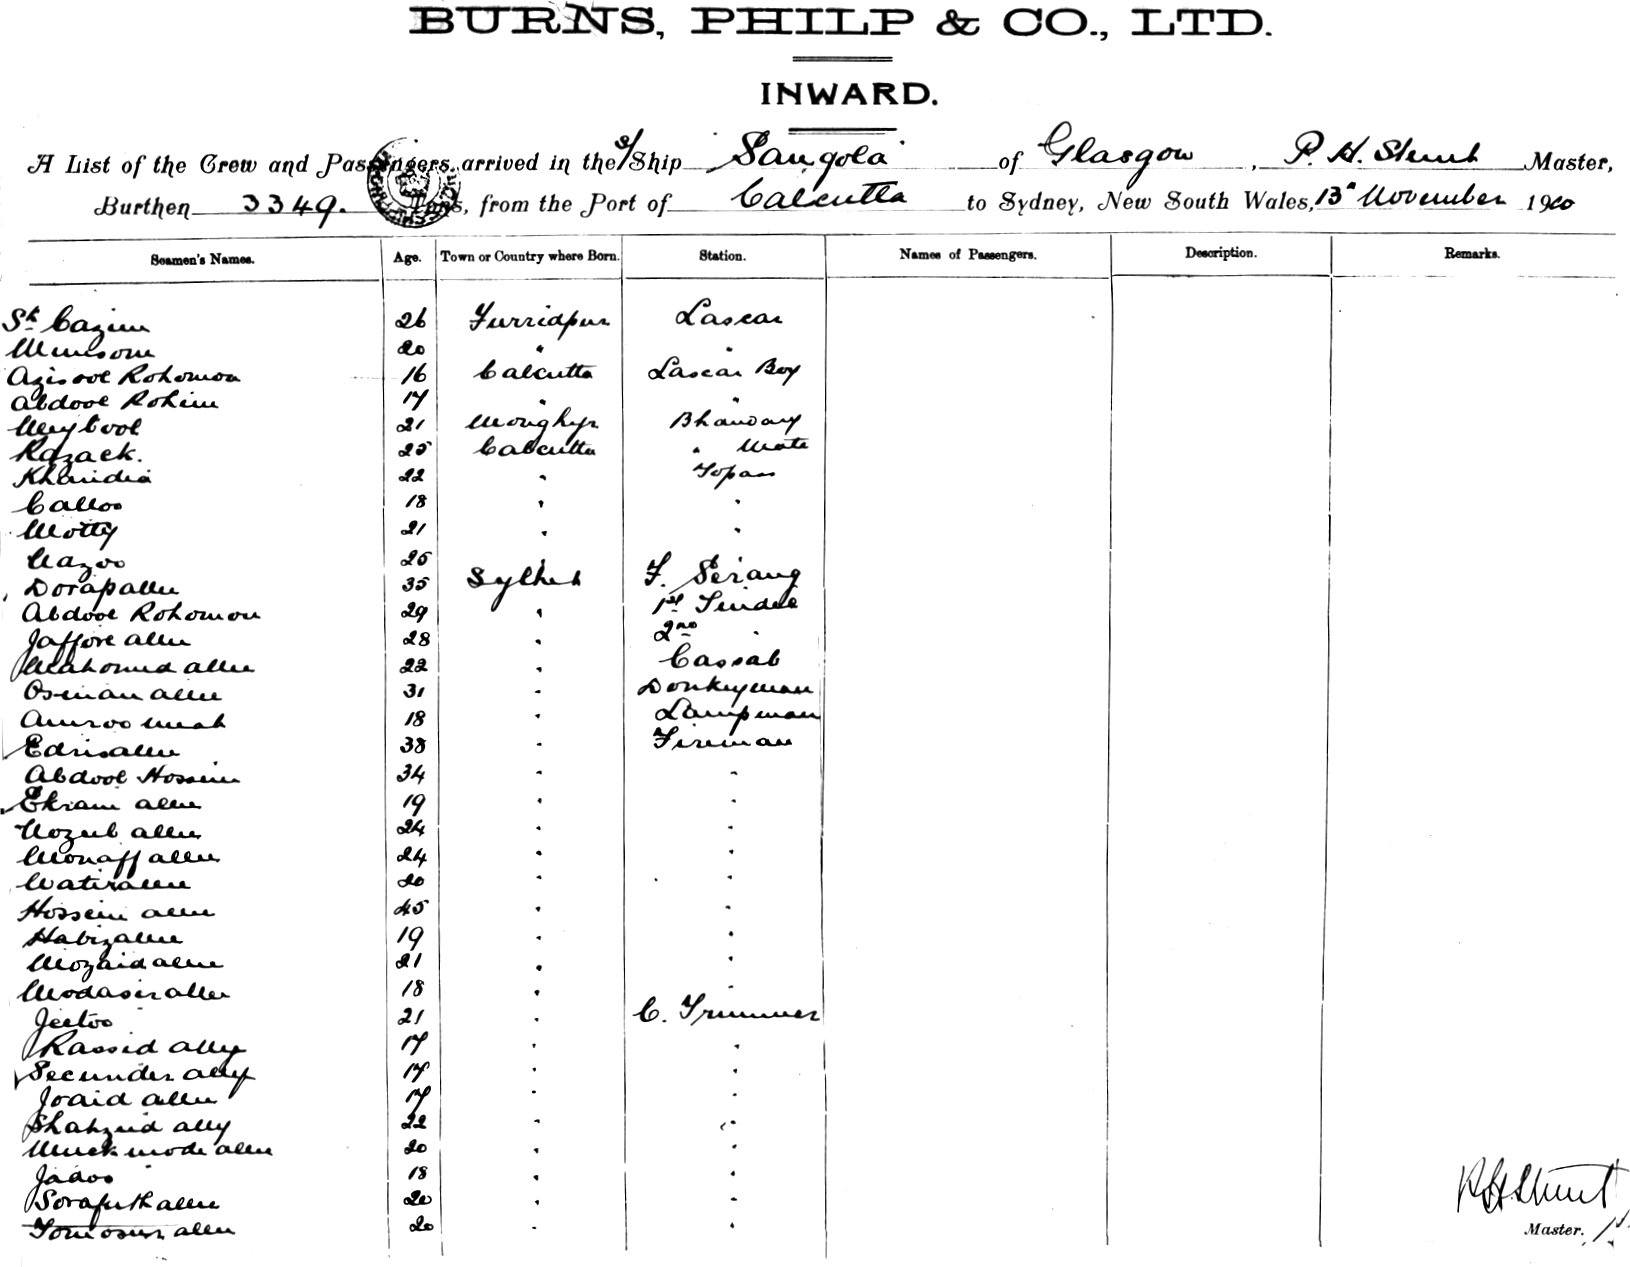 BURNS, PHILP & CO., LTD.
INWARD.
A List of the Crew and Passengers arrived in the S/Ship Sangola of Glasgow, P. H. Master,
Burthen 3349. Tons, from the Port of Calcutta to Sydney, New South Wales, 13th November 1900
Seamen's Names. Age. Town or Country where Born. Station. Names of Passengers. Description. Remarks.
Sk Cazim 26 Furridpur Lascar
20 " "
Azisool Rohomon 16 Calcutta Lascar Boy
Abdool Rohim 17 " "
21 Monghyr Bhandary
Razack. 25 Calcutta " Mate
22 " Topas
Calloo 18 " "
Motty 21 " "
Nazoo 25 "
Dorapallee 35 Sylhet F. Serang
Abdool Rohomon 29 " 1st Tindle
Jaffore allee 28 " 2nd "
Mahomed allee 22 " Cassab
Osman allee 31 " Donkeyman
Amroo meah 18 " Lampman
Edrisallee 38 " Fireman
Abdool Hossein 34 " "
Ekram allee 19 " "
Mozub allee 24 " "
Monaff allee 24 " "
Watirallee 20 " "
Hossein allee 45 " "
Habizallee 19 " "
Mozaid allee 21 " "
Modasir allee 18 " "
Jeetoo 21 " C. Trimmer
Rassid ally 17 " "
Secunder ally 17 " "
Joaid allee 17 " "
Shahzid ally 22 " "
Muckmode allee 20 " "
Jadoo 18 " "
Sorafuthallee 20 " "
allee 20 " "
Master.